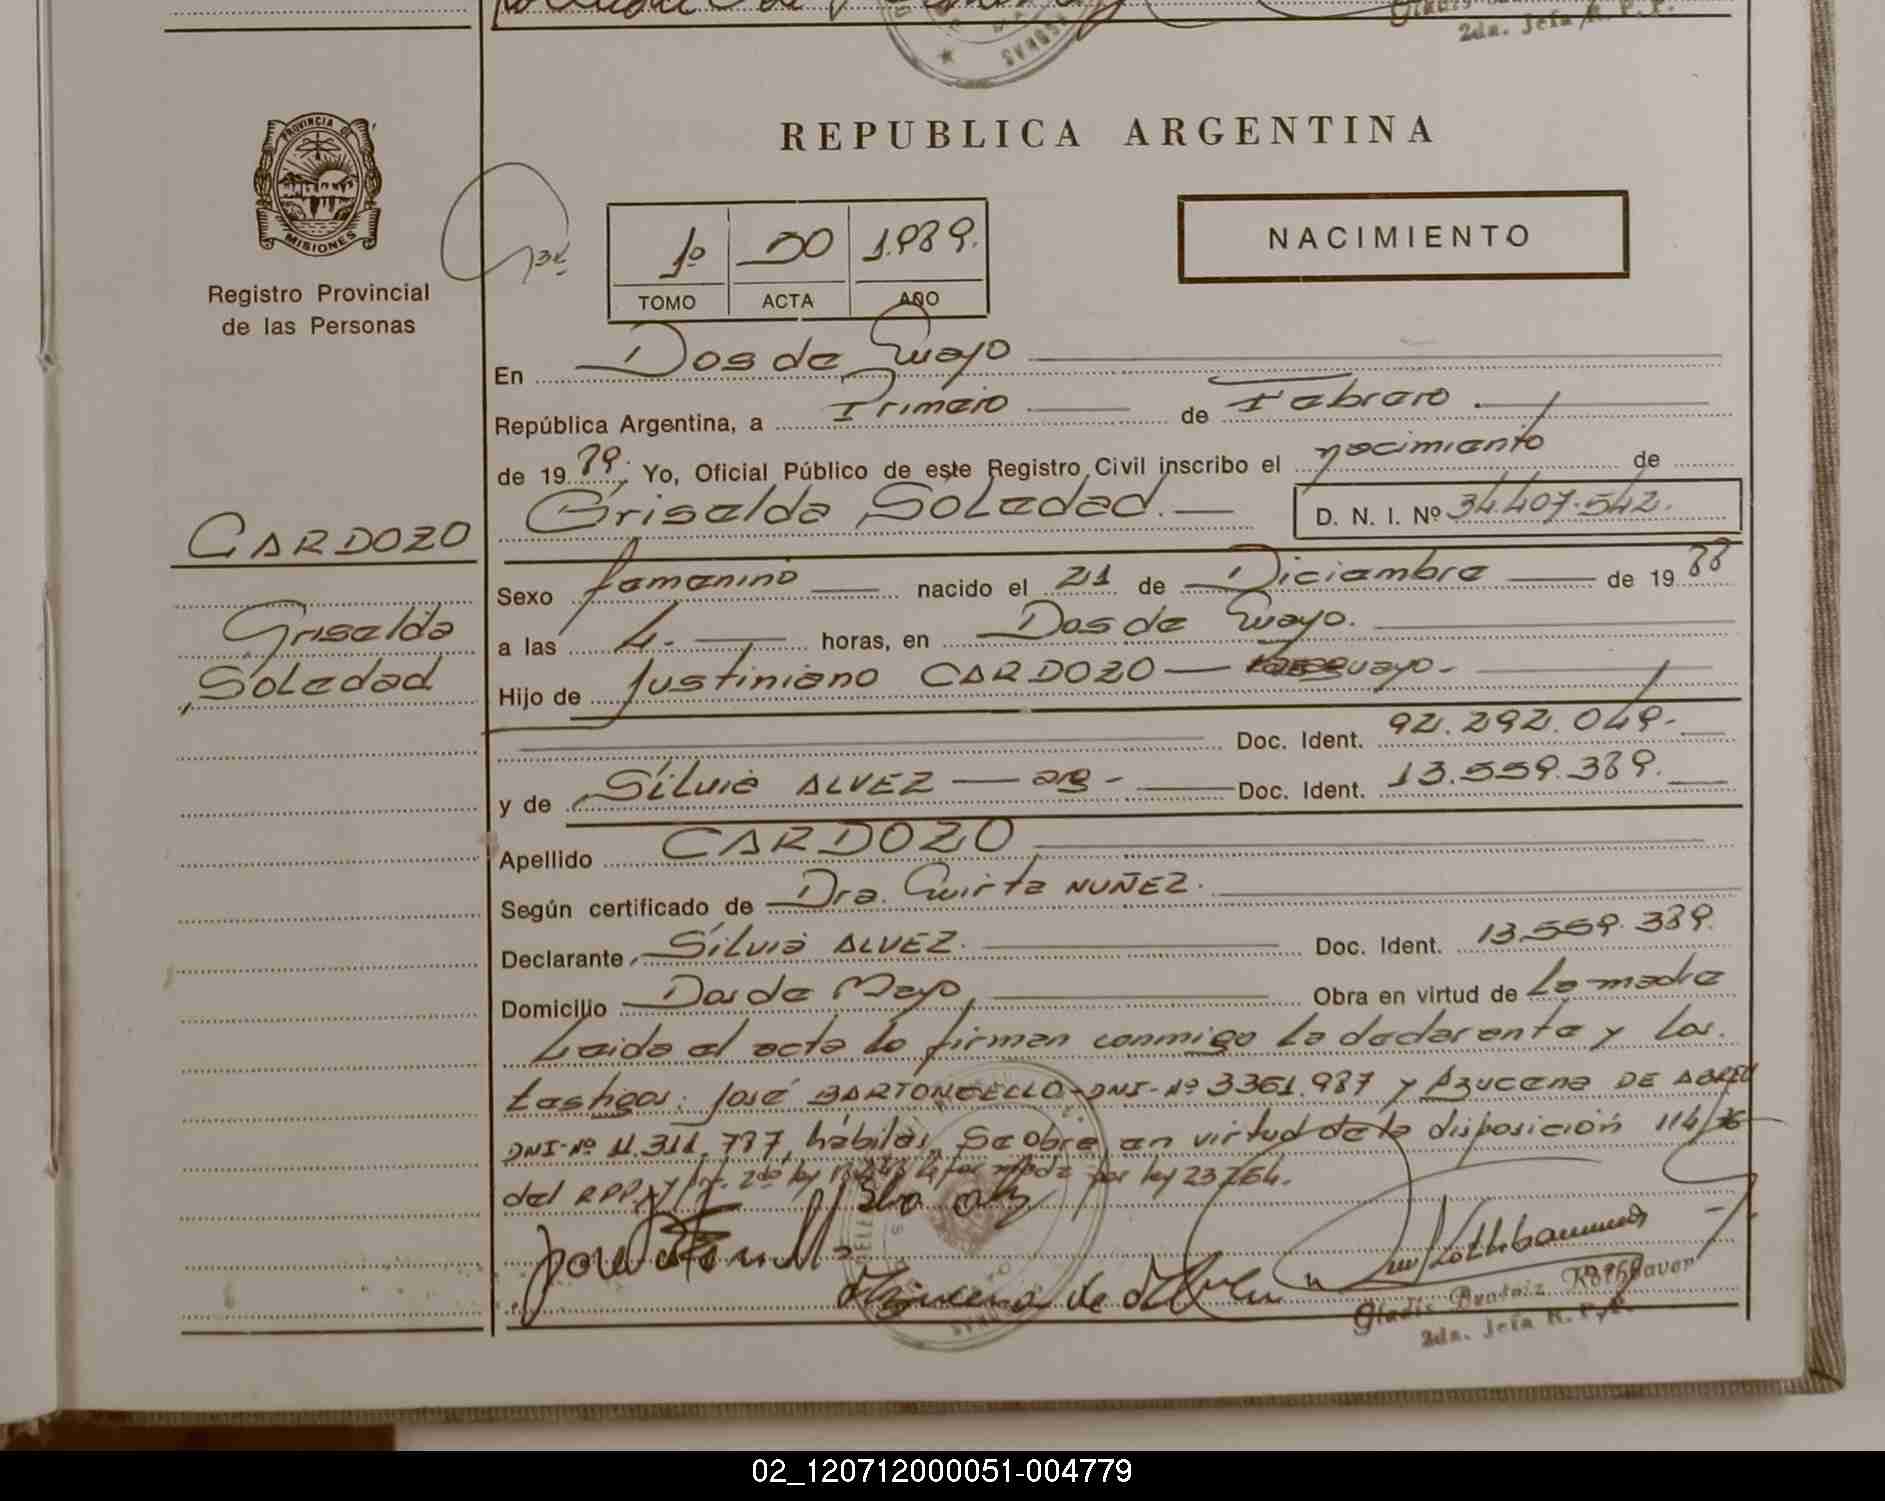 2da. Jefa R. P. P.
REPUBLICA ARGENTINA
PROVINCIA DE
MISIONES
Registro Provincial
de las Personas
1º 50 1.989.
TOMO ACTA AÑO
NACIMIENTO
En Dos de Mayo
República Argentina, a Primero de Febrero
de 1989. Yo, Oficial Público de este Registro Civil inscribo el nacimiento de
Griselda Soledad. D. N. I. Nº 34.407.542.
CARDOZO
Griselda
Soledad
Sexo femenino nacido el 21 de Diciembre de 1988
a las 4. horas, en Dos de Mayo.
Hijo de Justiniano CARDOZO
Doc. Ident. 92.292.049.
y de Silvia ALVEZ — arg - Doc. Ident. 13.559.389.
Apellido CARDOZO
Según certificado de Dra. Mirta NUÑEZ.
Declarante Silvia ALVEZ. Doc. Ident. 13.559.389.
Domicilio Dos de Mayo, Obra en virtud de la madre
Leida el acta la firman conmigo la declarante y los.
testigos: José BARTONCELLO-DNI-Nº 3361.987 y Azucena DE ABREU
DNI-Nº 11.311.787, hábiles, Se obra en virtud de la disposición 114/36
del RPP. y por ley 23264.
Gladis Beatriz Rothbaver
2da. Jefa R. P. P.
02_120712000051-004779